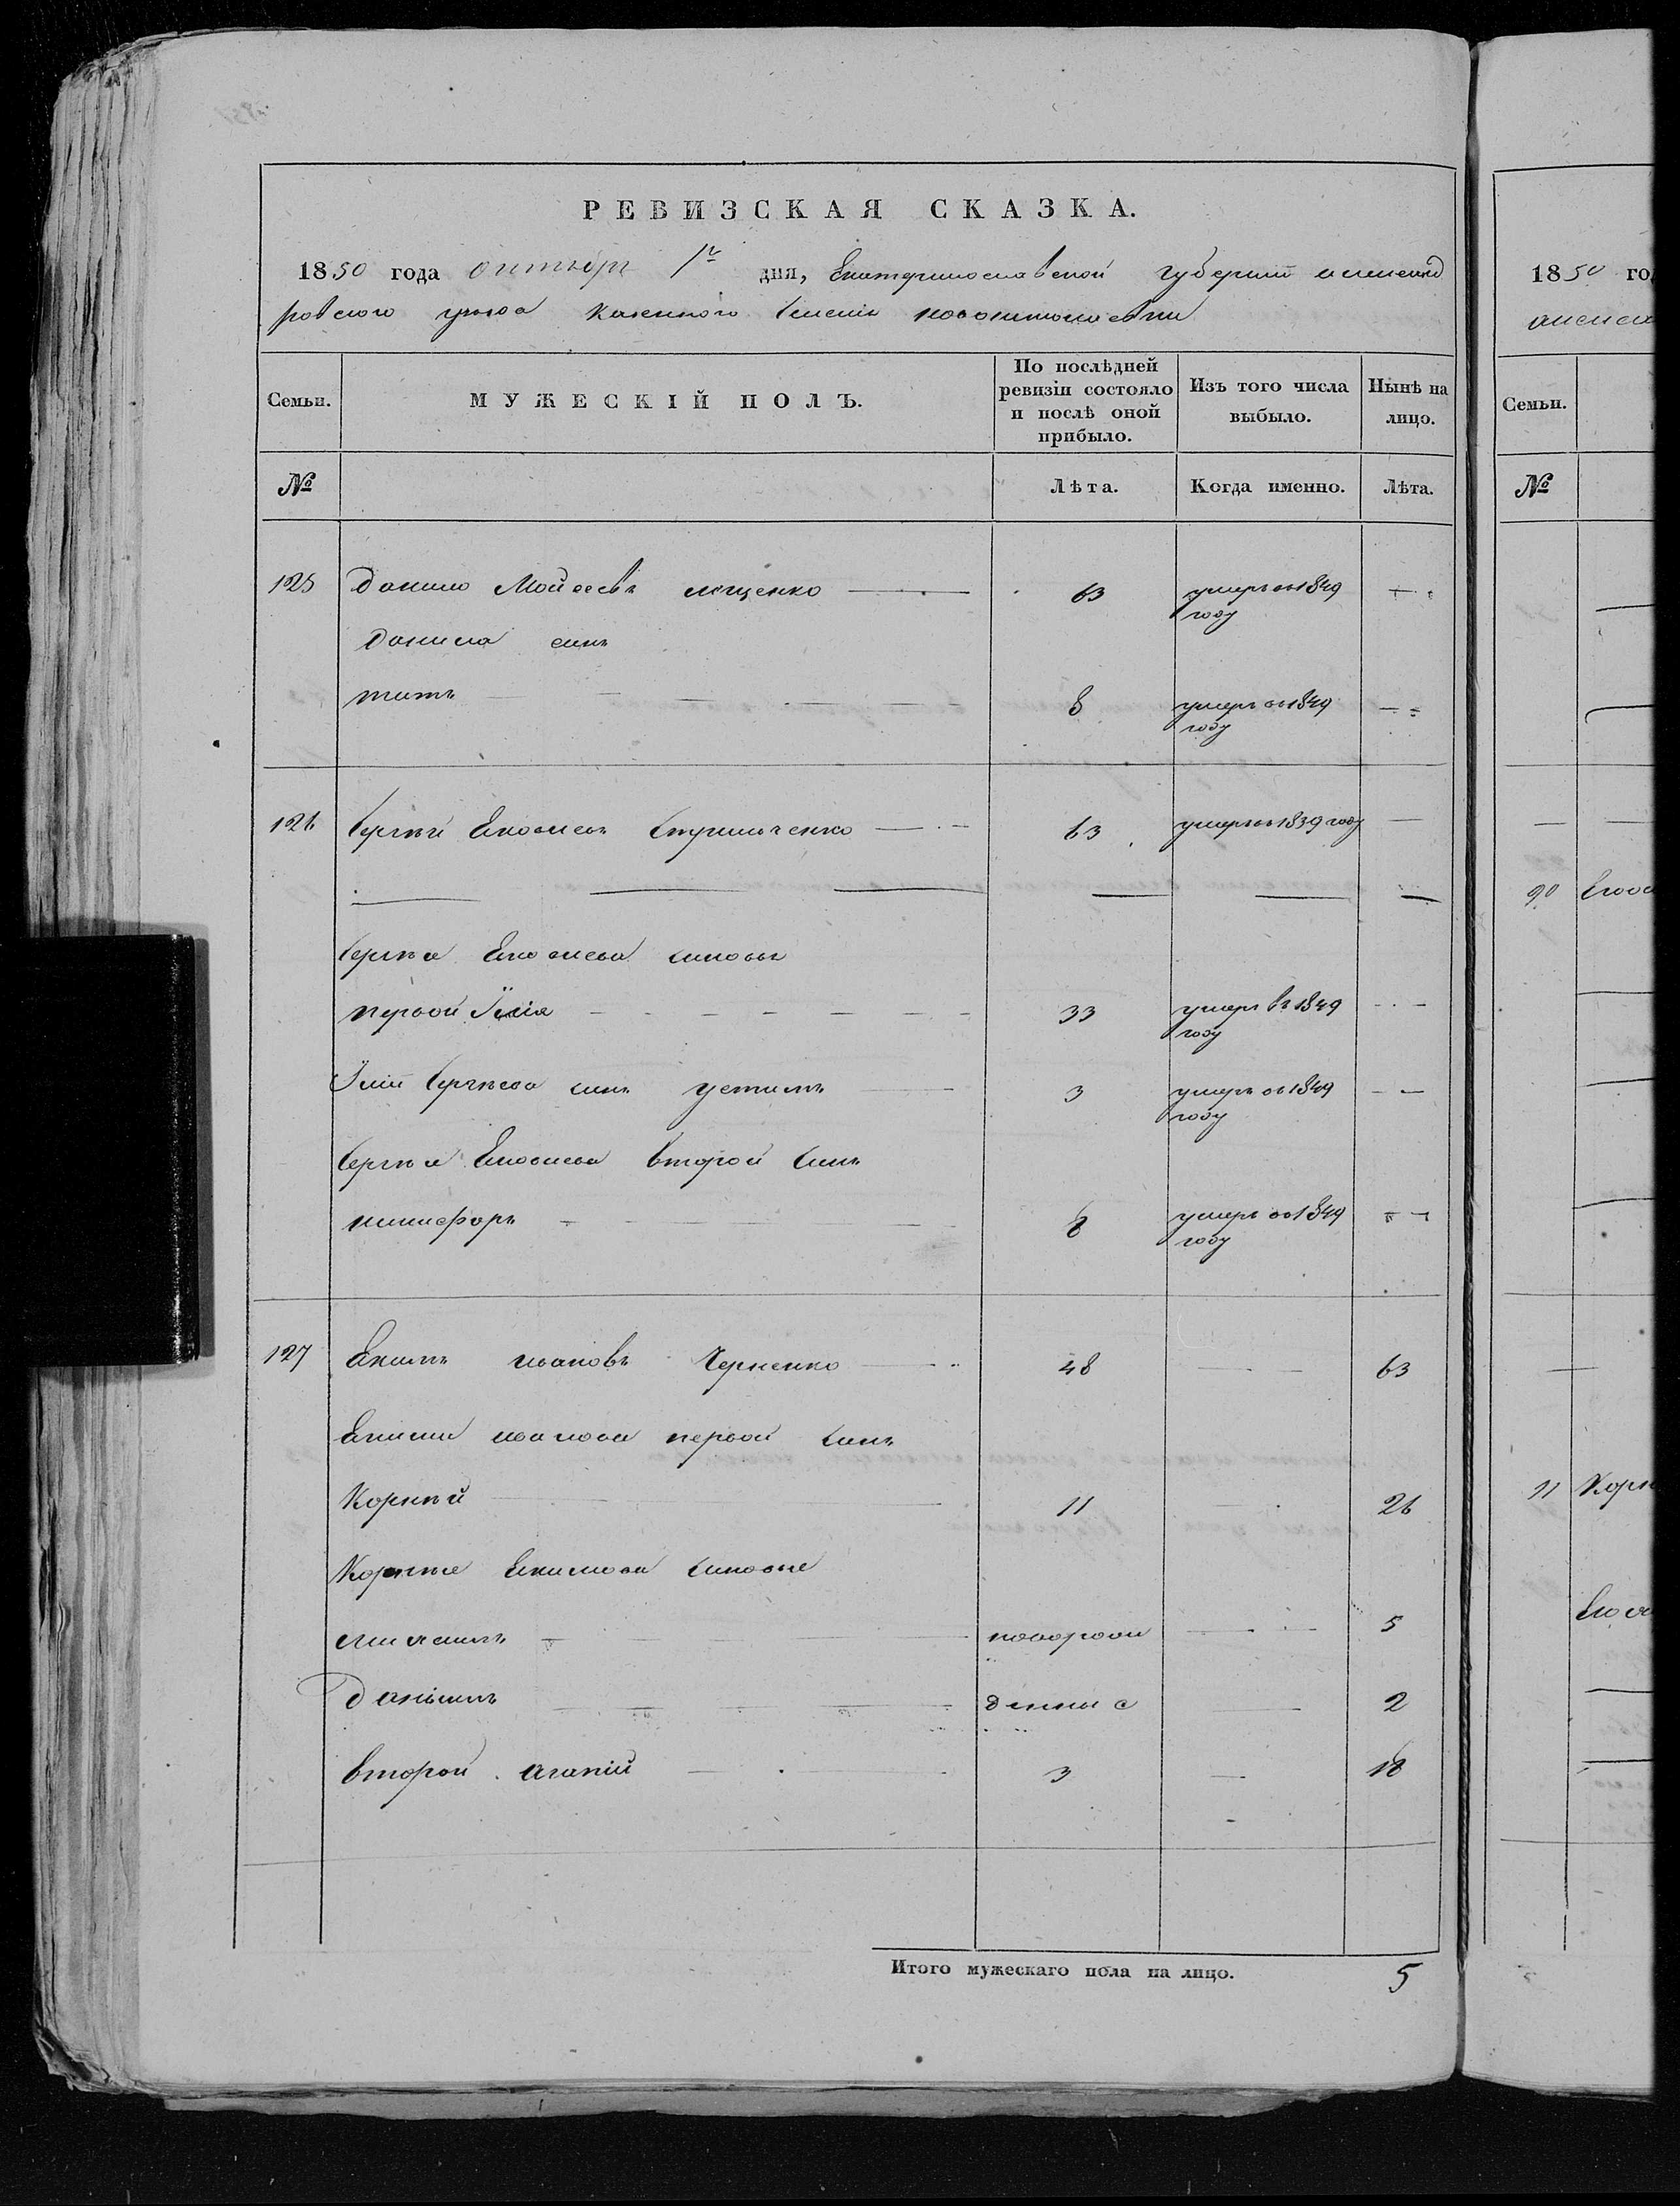 РЕВИЗСКАЯ СКАЗКА.
1850 года октября 1го дня, Екатеринославской губернии александ
ровского уезда казенного селения
Семьи.
МУЖЕСКІЙ ПОЛЪ.
По послѣдней ревизіи состояло и послѣ оной прибыло.
Изъ того числа выбыло.
Нынѣ на лицо.
№
Лѣта.
Когда именно.
Лѣта.
125 Данило Мойсеевъ лещенко 63 умеръ въ 1849 году
Данила синъ
титъ 8 умеръ въ 1849 году
126 Сергѣй Яковлевъ 63 умеръ въ 1839 году
Сергѣя Яковлева синовья
первой Ілія 33 умеръ въ 1849 году
Іліи Сергѣева синъ устимъ 3 умеръ въ 1849 году
Сергѣя Яковлева второй синъ
никифоръ 8 умеръ въ 1849 году
127 Екимъ ивановъ Черненко 48 63
Екима иванова первой синъ
Корнѣй 11 26
Корнѣя Екимова синовья
максимъ новорож 5
Даніилъ денны е 2
второй агапій 3 18
Итого мужескаго пола на лицо. 5
1850 го
алексан
Семьи.
№
90 Яков
11 Корн